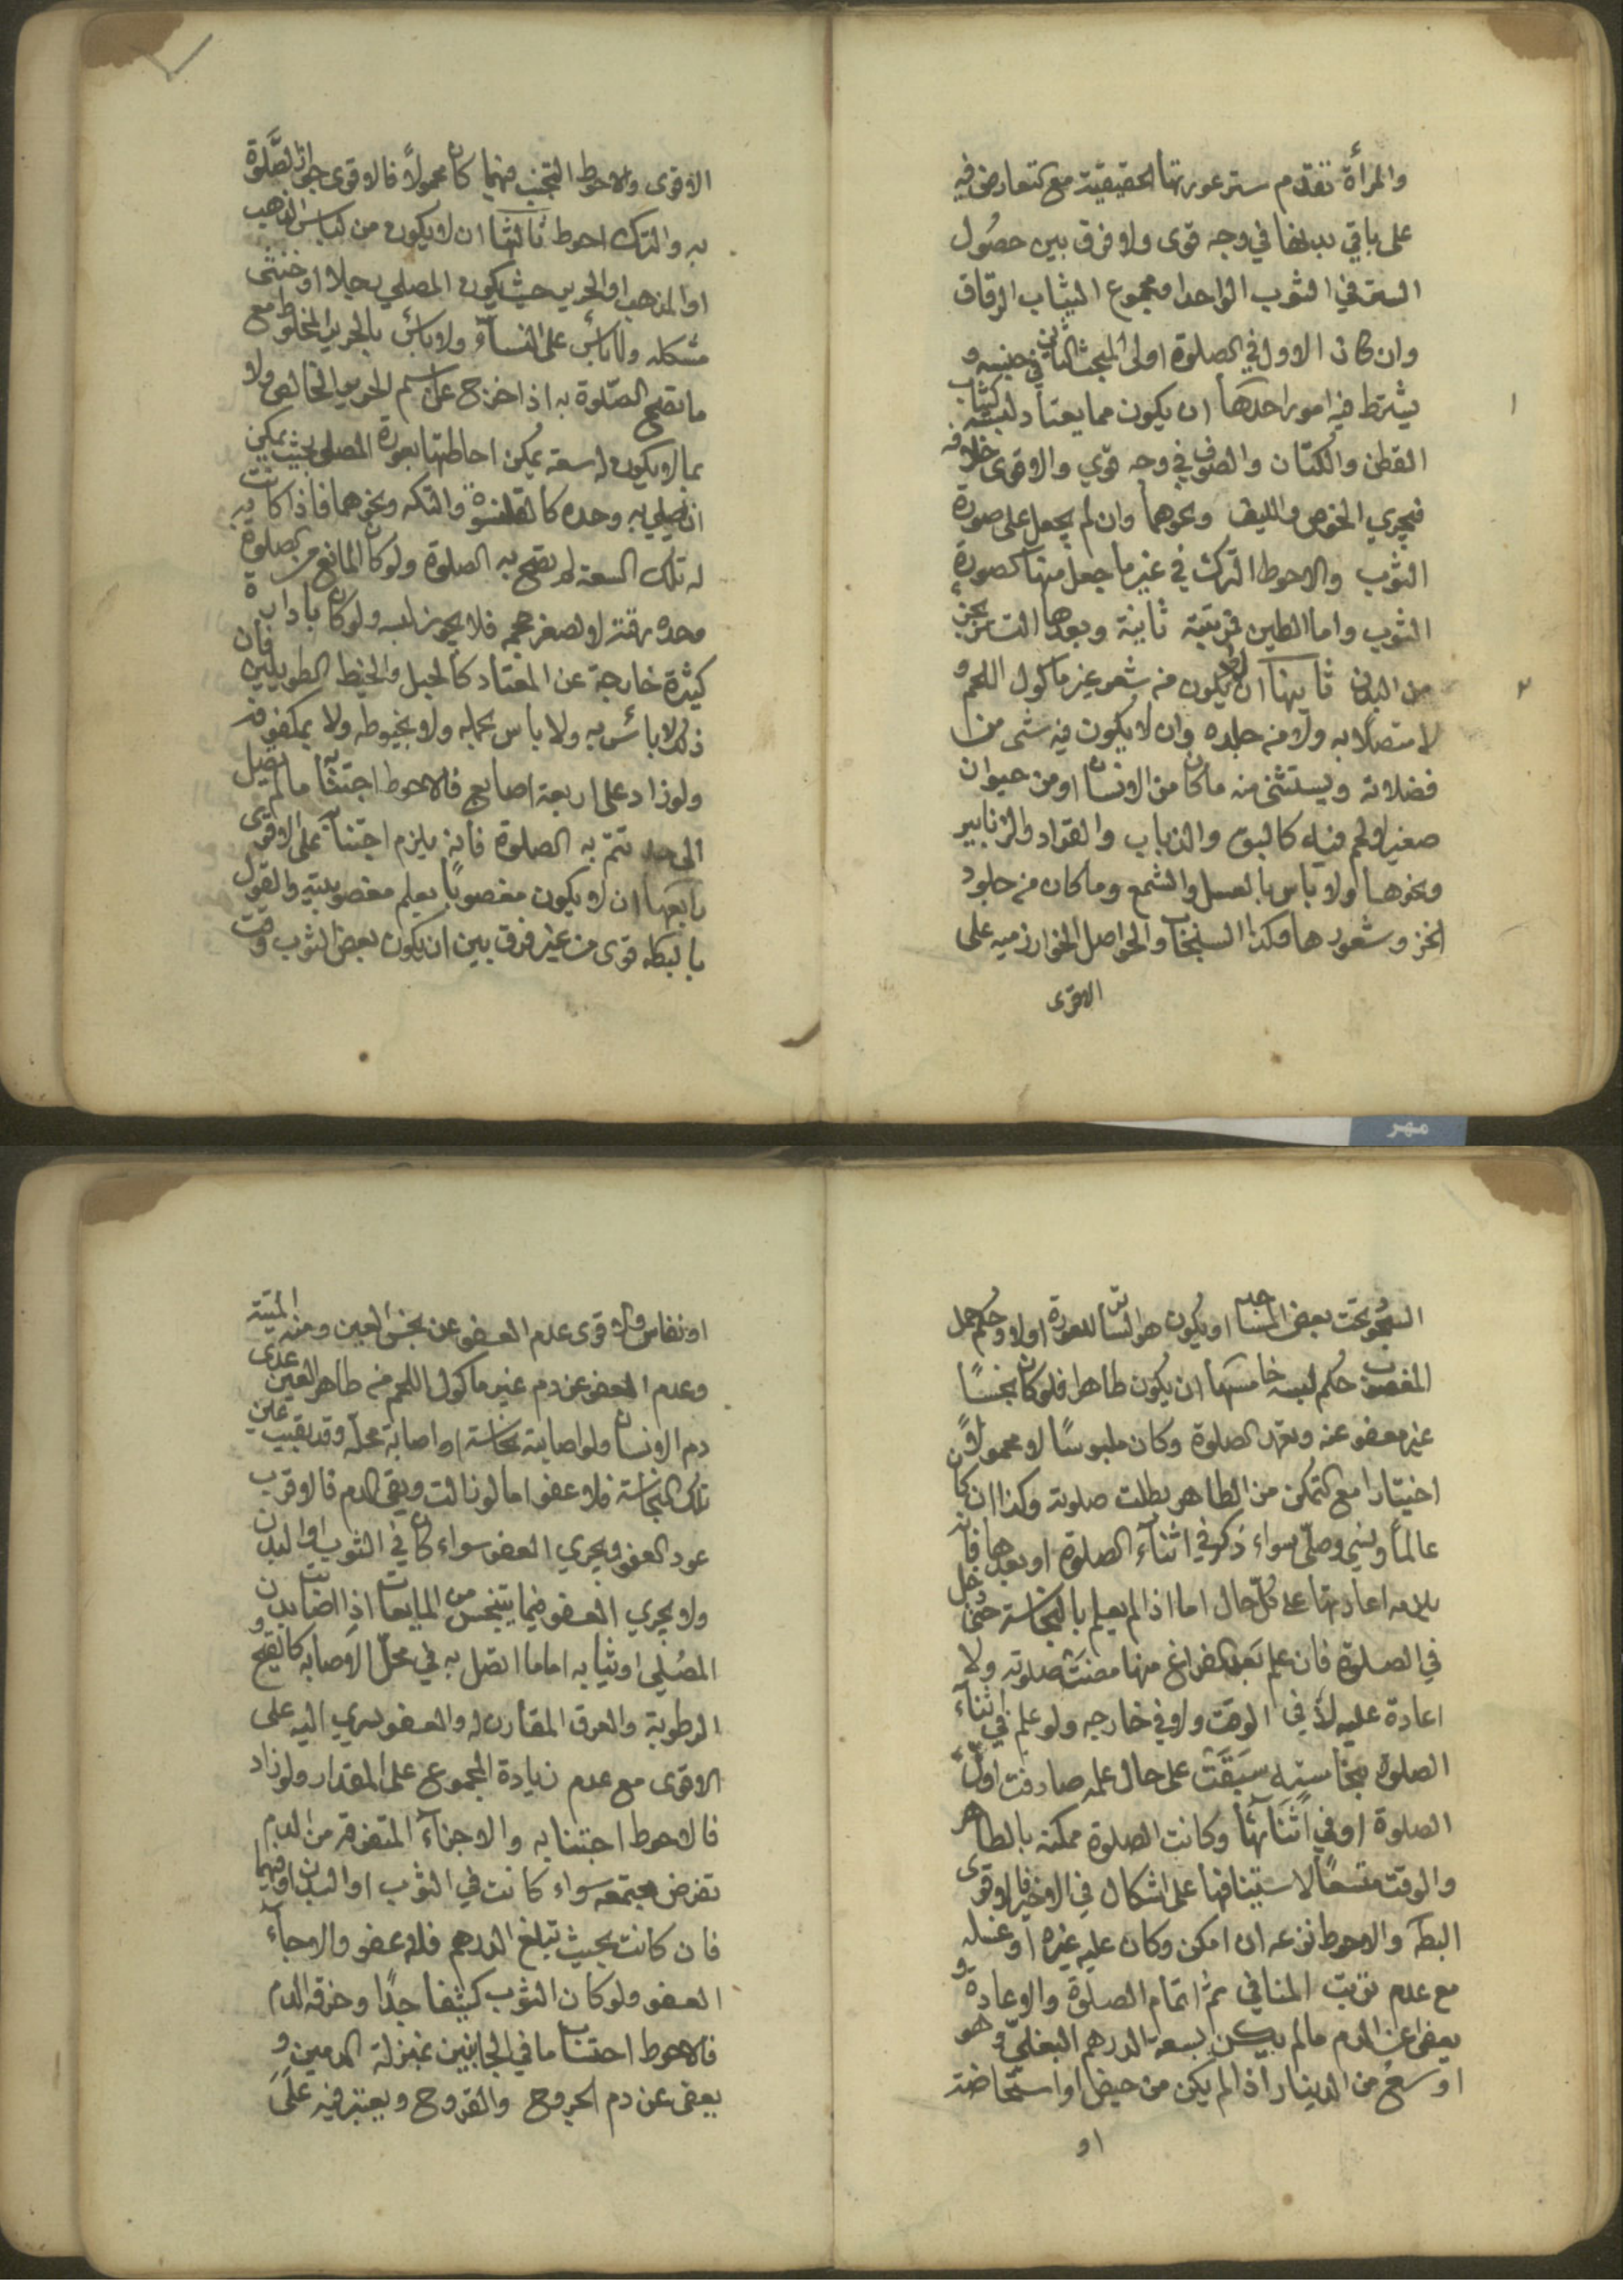 والمرأة تقدم ستر عورتها الحقيقية مع تعارض فيه
على باقي بدنها في وجه قوى ولا فرق بين حصُول
الستر في الثوب الواحد او مجموع الثياب الرقاق
وان كان الاول في الصلوة اولى المبحث الثاني في جنسه و
يشترط فيه امور احدها ان يكون مما يعتاد لبسه كثياب
القطن والكتان والصوف في وجه قوي والاقوى خلافه
فيجري الخوص والليف ونحوهما وان لم يجعل على صورة
الثوب والاحوط الترك في غير ما جعل منها كصورة
الثوب واما الطين فمرتبته ثانية وبعدها التستر بجزء
من البدن ثانيها ان لا يكون من شعر غير ماكول اللحم و
لا متصلا به ولا من جلده وان لا يكون فيه شىء من
فضلاته ويستثنى منه ما كان من الانسان او من حيوان
صغير لا لحم فيه كالبق والذباب والقراد والزنابير
ونحوها ولا باس بالعسل والشمع وما كان من جلود
الخز وشعورها وكذا السنجاب والحواصل الخوارزميه على
الاقوى
الاقوى والاحوط التجنب فيهما كان محمولاً فالاقوى جواز الصَّلوة
به والترك احوط ثالثها ان لا يكون من لباس الذهب
او المذهب او الحرير حيث يكون المصلي رجلا او خنثى
مشكله ولا باس على النساء ولا باس بالحرير المخلوط مع
ما تصح الصّلوة به اذا خرج عن اسم الحرير الخالص ولا
بما لا يكون له سعة يمكن احاطتها بعورة المصلى بحيث يمكن
ان يصلي به وحده كالقلنسوة والتكه ونحوهما فاذا كانت
له تلك السعة لم تصح به الصلوة ولو كان المانع من الصلوة به
وحده رقته او لصغر حجمه فلا يجوز لبسه ولو كان باداب
كثيرة خارجة عن المعتاد كالحبل والخيط الطويلين فان
ذلك لا باس به ولا باس بحمله ولا بخيوطه ولا بمكفوف
ولو زاد على اربعة اصابع فالاحوط اجتنابه ما لم يصل
الى حد تتم به الصلوة فانه يلزم اجتنابه على الاقوى
رابعها ان لا يكون مغصوبًا يعلم مغصوبيته والقول
بالبطله قوى من غير فرق بين ان يكون بعض الثوب وقت
السجود تحت بعض المساجد او يكون هو الساتر للعورة او لا وحكم حمل
المغصوب حكم لبسه خامسها ان يكون طاهرا فلو كان نجسًا
غير معفو عنه وتعمد الصلوة وكان ملبوسًا لا محمولاً
اختيارا مع التمكن من الطاهر بطلت صلوته وكذا ان كان
عالمًا ونسي وصلّى سواء ذكر في اثنآء الصلوة او بعدها فانه
يلزمه اعادتها على كلّ حال اما اذا لم يعلم بالنجاسة حتى دخل
في الصلوة فان علم بعد الفراغ منها مضت صلوته ولا
اعادة عليه لا في الوقت ولا في خارجه ولو علم في اثناء
الصلوة بنجاسته سبقت على حال علمه صادفت اول
الصلوة او في اثنائها وكانت الصلوة ممكنه بالطاهر
والوقت متسعاً لاستينافها على اشكال في الاخير فالاقوى
البطله والاحوط نزعه ان امكن وكان عليه غيره او غسله
مع عدم ترتب المنافي ثم اتمام الصلوة والاعادة و
يعفى عن الدم ما لم يكن بسعة الدرهم البغليّ وهو
اوسع من الدينار اذا لم يكن من حيض او استحاضة
او
او نفاس والاقوى عدم العفو عن نجس العين ومنه الميتة
وعدم العفو عن دم غير ماكول اللحم من طاهر العين عدى
دم الانسان ولو اصابته نجاسة او اصابة محلّه وقد بقيت عين
تلك النجاسة فلا عفو اما لو زالت وبقى الدم فالاقرب
عود العفو ويجري العفو سواء كان في الثوب او البدن
ولا يجري العفو فيما يتنجس من المايعات اذا اصابت بدن
المصُلي او ثيابه اما ما اتصل به في محلّ الاصابه كالقيح و
الرطوبة والعرق المقارن له والعفو يسري اليه على
الاقوى مع عدم زيادة المجموع على المقدار ولو زاد
فالاحوط اجتنابه والاجزآء المتفرقه من الدم
تفرض مجتمعه سواء كانت في الثوب او البدن او فيهما
فان كانت بحيث تبلغ الدرهم فلا عفو والا جآء
العفو ولو كان الثوب كثيفا جدًا وخرقه الدم
فالاحوط احتساب ما في الجانبين بمنزلة الدمين و
يعفى عن دم الجروح والقروح ويعتبر فيه على
مهر